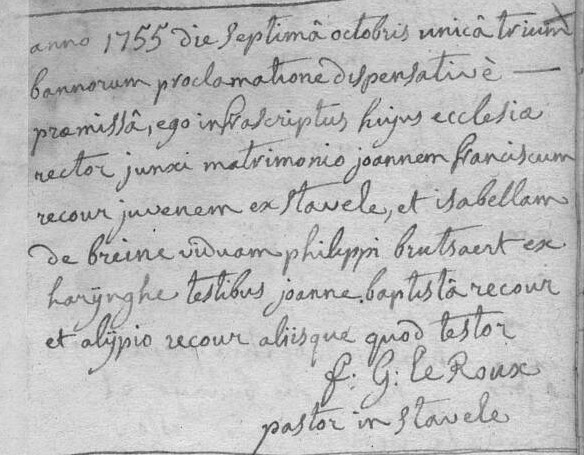 anno 1755 die septimâ octobris unicâ trium
bannorum proclamatione dispensativè —
præmissâ, ego infrascriptus hujus ecclesiæ
rector junxi matrimonio joannem franciscum
recour juvenem ex stavele, et isabellam
de breine viduam philippi brutsaert ex
harÿnghe testibus joanne baptistâ recour
et alÿpio recour aliisque quod testor
f: G: le Roux
pastor in stavele